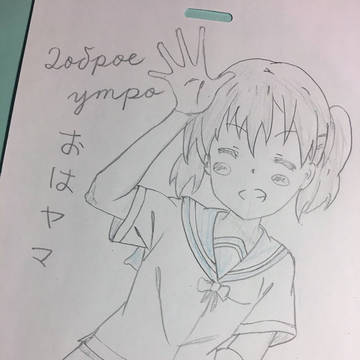 Доброе
утро
おはヤマ